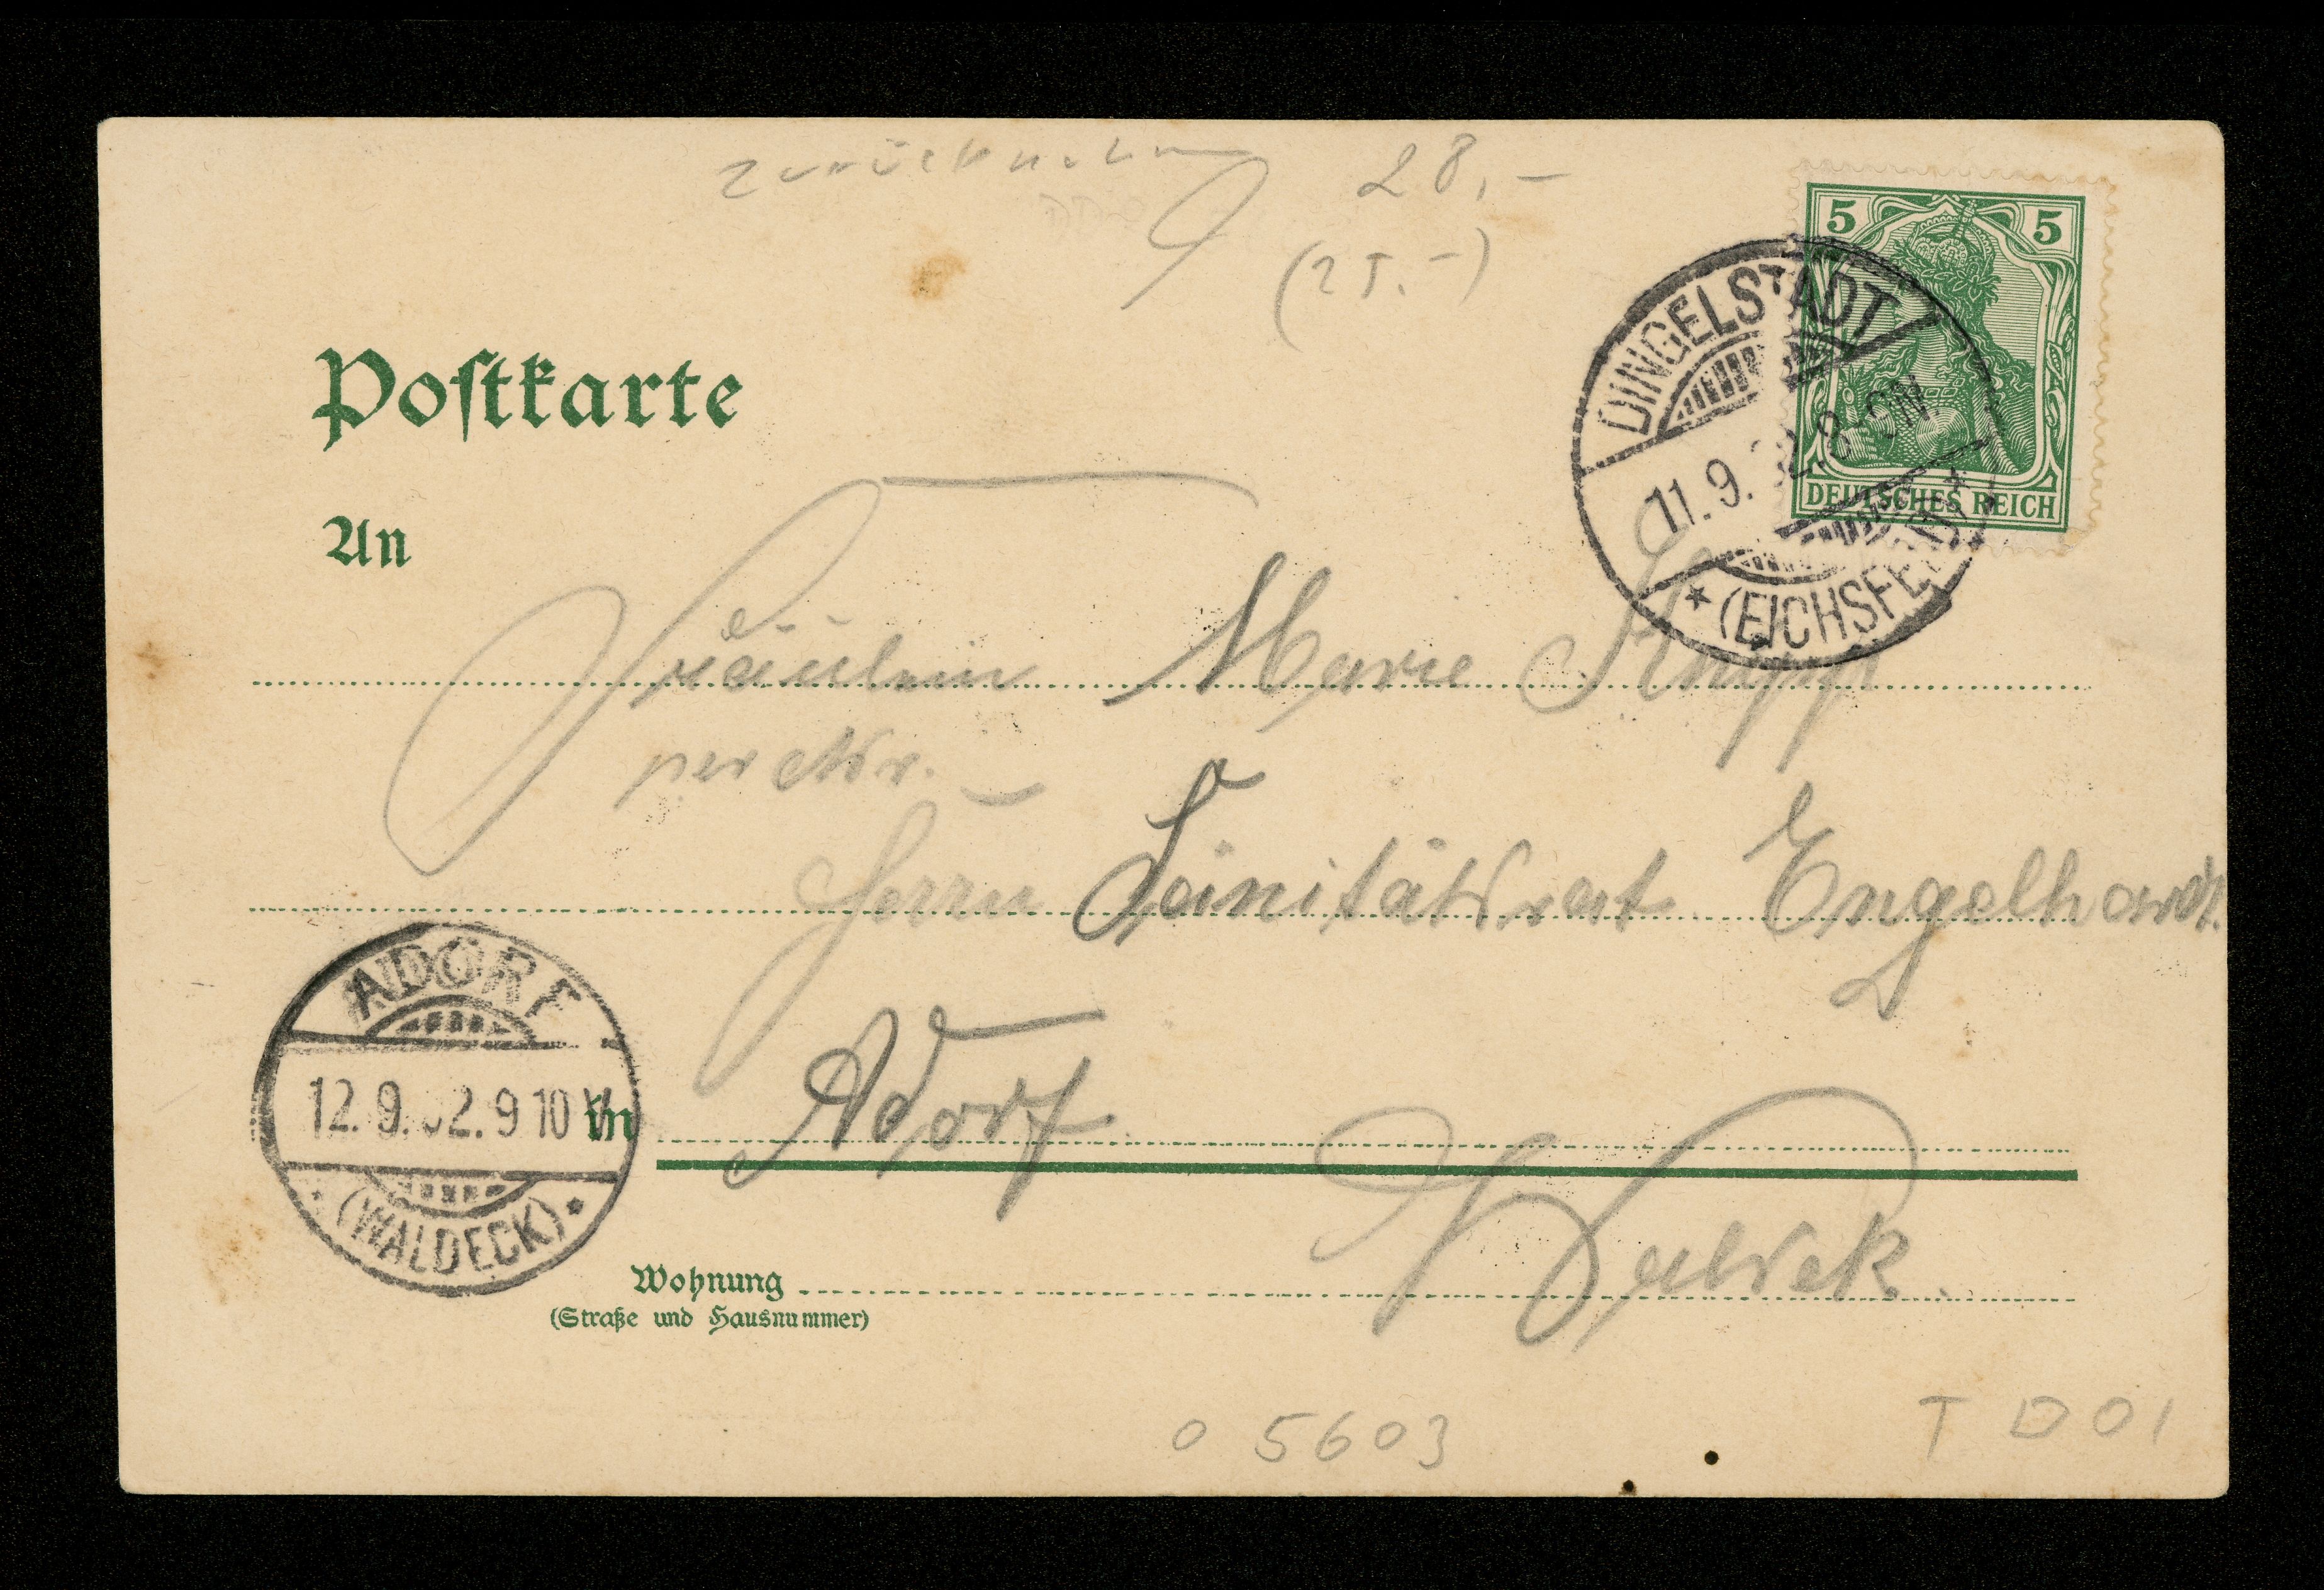 28,-
(25.-)
5 5
DEUTSCHES REICH
DINGELSTÄDT
11.9. 2.8-9N.
* (EICHSFELD) *
Postkarte
An
Fräulein Marie
per Adr.
Herrn Sanitätsrat Engelhardt.
ADORF
12.9.02.9 10 V.
* (WALDECK) *
in Adorf
Waldek.
Wohnung
(Straße und Hausnummer)
O 5603
T D 01